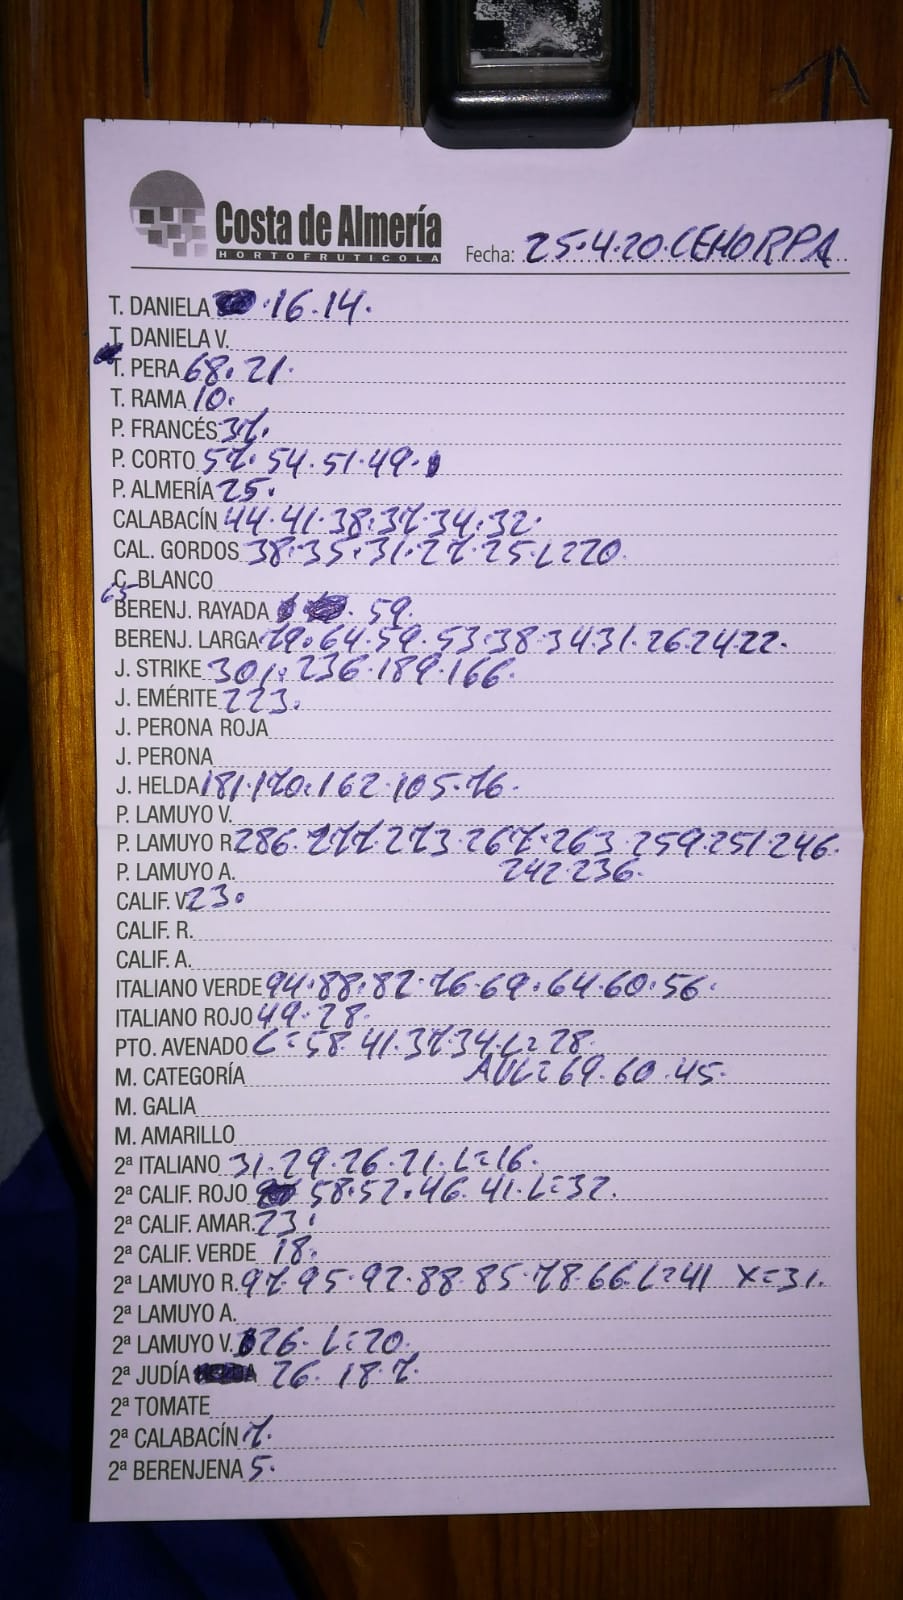 Costa de Almería
HORTOFRUTICOLA
Fecha: 25.4.20.CEHORPA
T. DANIELA .16.14.
T. DANIELA V.
T. PERA 68.21.
T. RAMA 10.
P. FRANCÉS 37.
P. CORTO 57. 54.51.49.
P. ALMERÍA 25.
CALABACÍN 44.41.38.37.34.32.
CAL. GORDOS 38.35.31.27.25.L=20.
C. BLANCO
65
BERENJ. RAYADA . 59.
BERENJ. LARGA 79.64.59.53.38.34.31.26.24.22.
J. STRIKE 301.236.189.166.
J. EMÉRITE 223.
J. PERONA ROJA
J. PERONA
J. HELDA 181.170.162.105.76.
P. LAMUYO V.
P. LAMUYO R. 286.277.273.267.263.259.251.246.
P. LAMUYO A. 242.236.
CALIF. V. 23.
CALIF. R.
CALIF. A.
ITALIANO VERDE 94.88.82.76.69.64.60.56.
ITALIANO ROJO 49.28.
PTO. AVENADO C=58.41.37.34.L=28.
M. CATEGORÍA AUL=69.60.45.
M. GALIA
M. AMARILLO
2ª ITALIANO 31.29.26.21.L=16.
2ª CALIF. ROJO 58.52.46.41.L=32.
2ª CALIF. AMAR. 23.
2ª CALIF. VERDE 18.
2ª LAMUYO R. 97.95.92.88.85.78.66.L=41 X=31.
2ª LAMUYO A.
2ª LAMUYO V. 26. L=20.
2ª JUDÍA 26. 18.7.
2ª TOMATE
2ª CALABACÍN 7.
2ª BERENJENA 5.